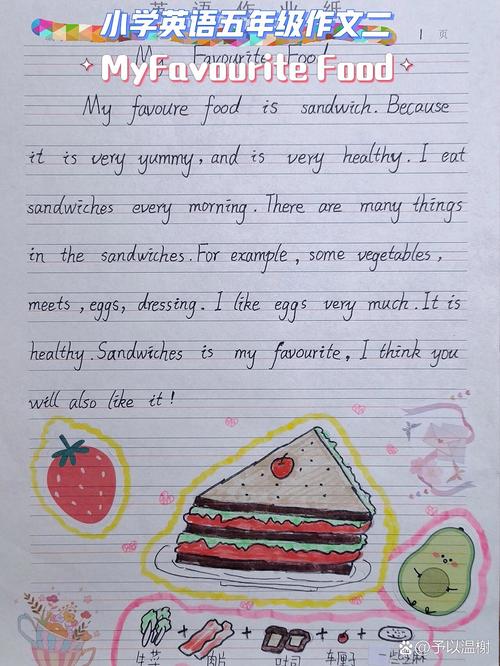 小学英语五年级作文二
1 页
My Favourite Food
MyFavourite Food
My favoure food is sandwich. Because
it is very yummy, and is very healthy. I eat
sandwiches every morning. There are many things
in the sandwiches. For example, some vegetables,
meets, eggs, dressing. I like eggs very much. It is
healthy. Sandwiches is my favourite, I think you
will also like it!
生菜 肉片 吐司 车厘子
@予以温榭